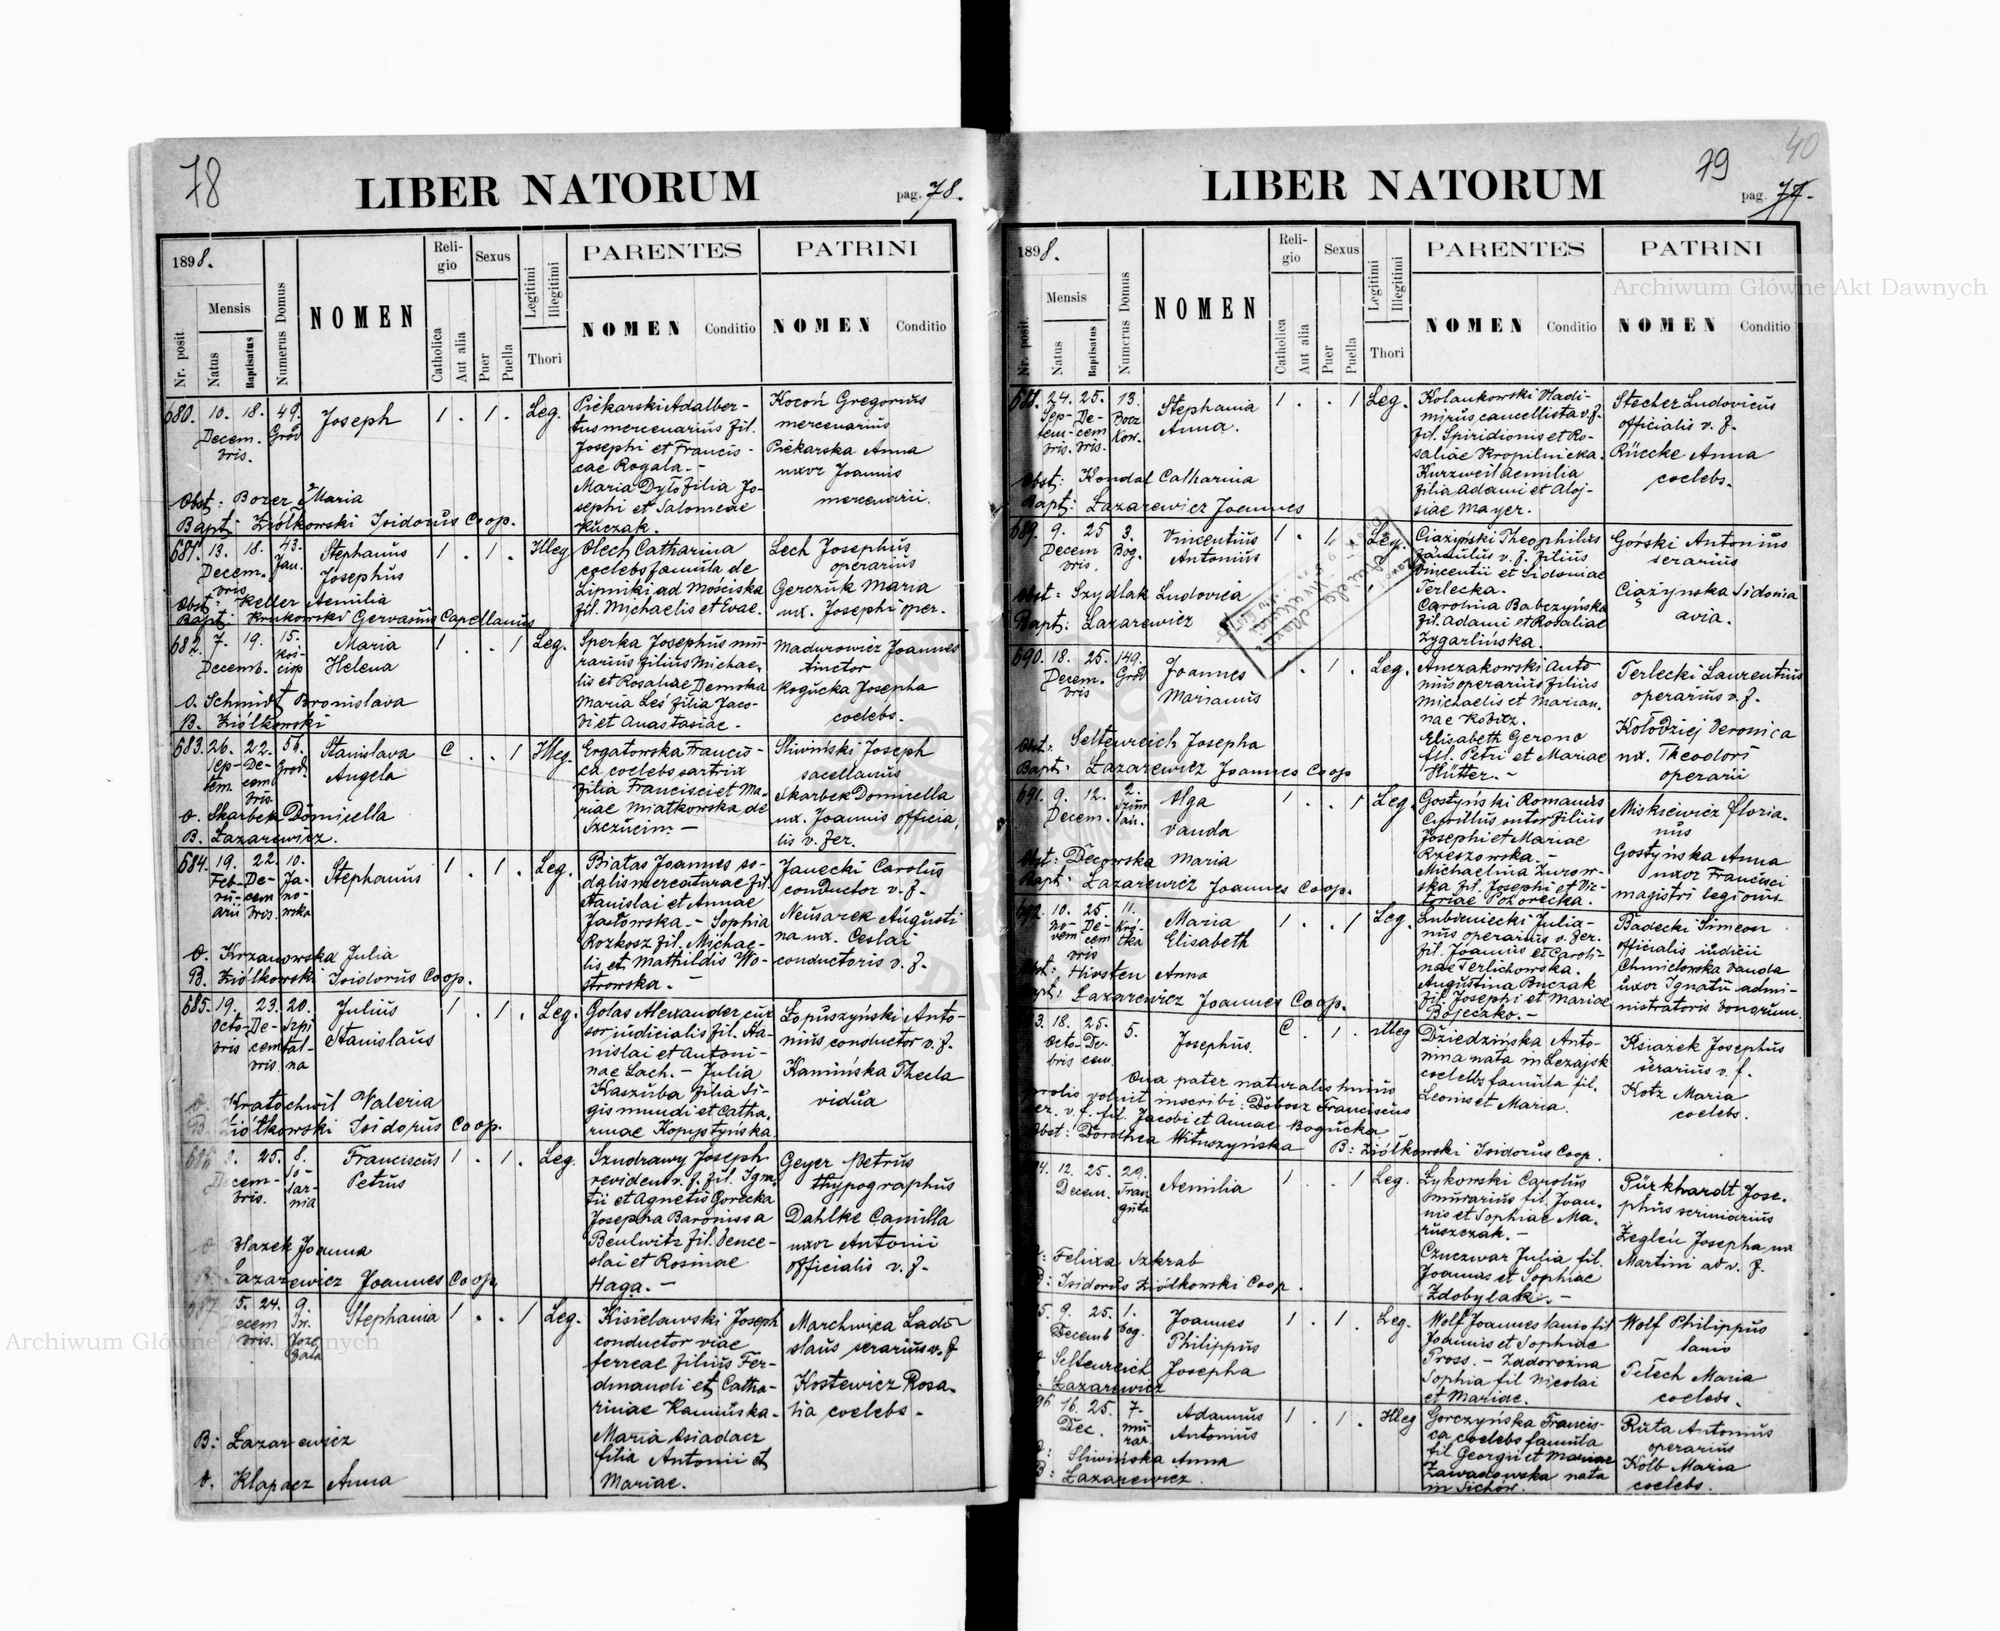 78
LIBER NATORUM
pag. 78.
1898.
Nr. posit.
Mensis
Natus
Baptisatus
Numerus Domus
NOMEN
Reli-
gio
Catholica
Aut alia
Sexus
Puer
Puella
Legitimi
Illegitimi
Thori
PARENTES
NOMEN
Conditio
PATRINI
NOMEN
Conditio
680. 10. 18. 49.
Decem. Gród
bris.
Joseph
1 . 1 . Leg.
Piekarski Adalber-
tus mercenarius fil.
Josephi et Francis-
cae Rogala. -
Maria Dyło filia Jo-
sephi et Salomeae
Kuczak.
Kocoń Gregorius
mercenarius
Piekarska Anna
uxor Joannis
mercenarii.
Obst: Bozer Maria
Bapt: Ziółkowski Isidorus Coop.
681. 13. 18. 43.
Decem. Jan.
bris
Stephanus
Josephus
1 . 1 . Illeg
Olech Catharina
coelebs famula de
Lipniki ad Mościska
fil. Michaelis et Evae.
Lech Josephus
operarius
Gerczuk Maria
ux. Josephi oper.
Obst: Keller Aemilia
Bapt: Krukowski Gervasius Capellanus
682. 7. 19. 15.
Decemb. Koś-
ciop
Maria
Helena
1 . . 1 Leg.
Sperka Josephus mu-
rarius filius Michae-
lis et Rosaliae Demska
Maria Leś filia Jaco-
bi et Anastasiae.
Madurowicz Joannes
tinctor
Rogucka Josepha
coelebs.
O. Schmidt Bronislava
B. Ziółkowski
683. 26. 22. 56.
Sep- De- Grod.
tem. cem
bris.
Stanislava
Angela
C . . 1 Illeg.
Ergatowska Francis-
ca coelebs sartrix
filia Francisci et Ma-
riae Miatkowska de
Szczucin. -
Sliwiński Joseph
sacellanus
Skarbek Domicella
ux. Joannis officia-
lis v. fer.
O. Skarbek Domicella
B. Lazarewicz.
684. 19. 22. 10.
Feb- De- Ja-
ru- cem no-
arii bris. wska
Stephanus
1 . 1 . Leg.
Białas Joannes so-
dalis mercaturae fil.
Stanislai et Annae
Jastowska. - Sophia
Rozkosz fil. Michae-
lis et Mathildis Wo-
strowska. -
Janecki Carolus
conductor v. f.
Neusarek Augusti
na ux. Ceslai
conductoris v. f.
O. Krzanowska Julia
B. Ziółkowski Isidorus Coop.
685. 19. 23. 20.
Octo- De- Szpi
bris cem tal-
bris na
Julius
Stanislaus
1 . 1 . Leg.
Golas Alexander cur
sor iudicialis fil. Sta-
nislai et Antoni-
nae Lach. - Julia
Kaszuba filia Si-
gismundi et Catha-
rinae Kopystyńska.
Łopuszyński Anto-
nius conductor v. f.
Kamińska Thecla
vidua
O. Kratochwil Valeria
B. Ziółkowski Isidorus Coop.
25. 8.
Decem-
bris.
Franciscus
Petrus
1 . 1 . Leg.
Szudrawy Joseph
reviden v. f. fil. Igna-
tii et Agnetis Gorecka
Josepha Baronissa
Beulwitz fil. Vence-
slai et Rosinae
Haga. -
Geyer Petrus
thypographus
Dahlke Camilla
uxor Antonii
officialis v. f.
O. Hazek Joanna
B. Lazarewicz Joannes Coop.
5. 24. 9.
Decem
bris.
Stephania
1 . . 1 Leg.
Kisielawski Joseph
conductor viae
ferreae filius Fer-
dinandi et Catha-
rinae Kamińska.
Maria Osiadacz
filia Antonii et
Mariae.
Marchwica Ladi-
slaus serarius v. f
Kostewicz Rosa-
lia coelebs.
B: Lazarewicz
O. Klapacz Anna
79
40
LIBER NATORUM
pag. 77.
1898.
Nr. posit.
Mensis
Natus
Baptisatus
Numerus Domus
NOMEN
Reli-
gio
Catholica
Aut alia
Sexus
Puer
Puella
Legitimi
Illegitimi
Thori
PARENTES
NOMEN
Conditio
PATRINI
NOMEN
Conditio
Archiwum Główne Akt Dawnych
24. 25. 13.
Sep- De-
tem- cem
bris. bris.
Stephania
Anna.
1 . . 1 Leg.
Kolankowski Vladi-
mirus cancellista v. f.
fil. Spiridionis et Ro-
saliae Kropilnicka.
Kurzweil Aemilia
filia Adami et Aloj-
siae Mayer.
Stecher Ludovicus
officialis v. f.
Rüecke Anna
coelebs.
Obst: Kondol Catharina
Bapt: Lazarewicz Joannes
689. 9. 25 3.
Decem Bog.
bris.
Vincentius
Antonius
1 . 1 . Leg.
Ciażyński Theophilus
famulus v. f. filius
Vincentii et Sidoniae
Terlecka.
Carolina Babczyńska
fil. Adami et Rosaliae
Zygarlińska.
Górski Antonius
serarius
Ciążynska Sidonia
avia.
Obst: Szydlak Ludovica
Bapt: Lazarewicz
690. 18. 25. 149.
Decem. Gród
bris
Joannes
Marianus
. 1 . Leg.
Anczakowski Anto
nius operarius filius
Michaelis et Marian-
nae Kobicz.
Elisabeth Gerono
fil. Petri et Mariae
Hütter. -
Terlecki Laurentius
operarius v. f.
Kołodziej Veronica
ux. Theodori
operarii
Obst. Seltenreich Josepha
Bapt. Lazarewicz Joannes Coop
691. 9. 12. 2.
Decem.
Olga
Vanda
1 . . 1 Leg.
Gostyński Romanus
Cyrillus sutor filius
Josephi et Mariae
Rzeszowska. -
Michaelina Zurow-
ska fil. Josephi et Vic-
toriae Pohorecka.
Miskiewicz Floria-
nus
Gostyńska Anna
uxor Francisci
magistri legionis
Obst: Decowska Maria
Bapt. Lazarewicz Joannes Coop.
692. 10. 25. 11.
No- De- Kró-
vem cem tka
bris
Maria
Elisabeth
1 . . 1 Leg.
Lubieniecki Julia-
nus operarius v. fer.
fil. Joannis et Caroli-
nae Terlichowska.
Augustina Buczak
fil. Josephi et Mariae
Bojeczko. -
Badecki Simeon
officialis iudicii
Chmielowska Vanda
uxor Ignatii admi-
nistratoris bonorum.
Obst: Hirsten Anna
Bapt: Lazarewicz Joannes Coop.
3. 18. 25. 5.
Octo- De-
bris cem
Josephus.
C . 1 . Illeg
Dziedzińska Anto-
nina nata in Leżajsk
coelebs famula fil.
Leonis et Maria.
Ksiażek Josephus
serarius v. f.
Kotz Maria
coelebs.
Qua pater naturalis huius
prolis voluit inscribi: Dobosz Franciscus
ser. v. f. fil. Jacobi et Annae Bogucka
Obst: Dorothea Wituszyńska B: Ziółkowski Isidorus Coop.
94. 12. 25. 29.
Decem.
Aemilia
1 . . 1 Leg.
Lykowski Carolus
murarius fil. Joan-
nis et Sophiae Ma-
ruszczak. -
Czuczwar Julia fil.
Joannis et Sophiae
Zdobylak. -
Pürkhardt Jose-
phus scriniarius
Zegleń Josepha ux
Martini ad v. f.
O: Felixa Szkrab
B: Isidorus Ziółkowski Coop.
95. 9. 25. 1.
Decemb Bog.
Joannes
Philippus
1 . 1 . Leg.
Wolf Joannes lanio fil
Joannis et Sophiae
Pross. - Zadorożna
Sophia fil Nicolai
et Mariae.
Wolf Philippus
lanio
Pełech Maria
coelebs.
O Seltenreich Josepha
B. Lazarewicz
96 16. 25. 7-
Dec. mu-
rar.
Adamus
Antonius
1 . 1 . Illeg
Gorczyńska Francis-
ca coelebs famula
fil Georgii et Mariae
Zawadowska nata
in Sichów.
Ruta Antonius
operarius
Kolb Maria
coelebs.
O: Sliwińska Anna
B: Lazarewicz.
Archiwum Główne Akt Dawnych